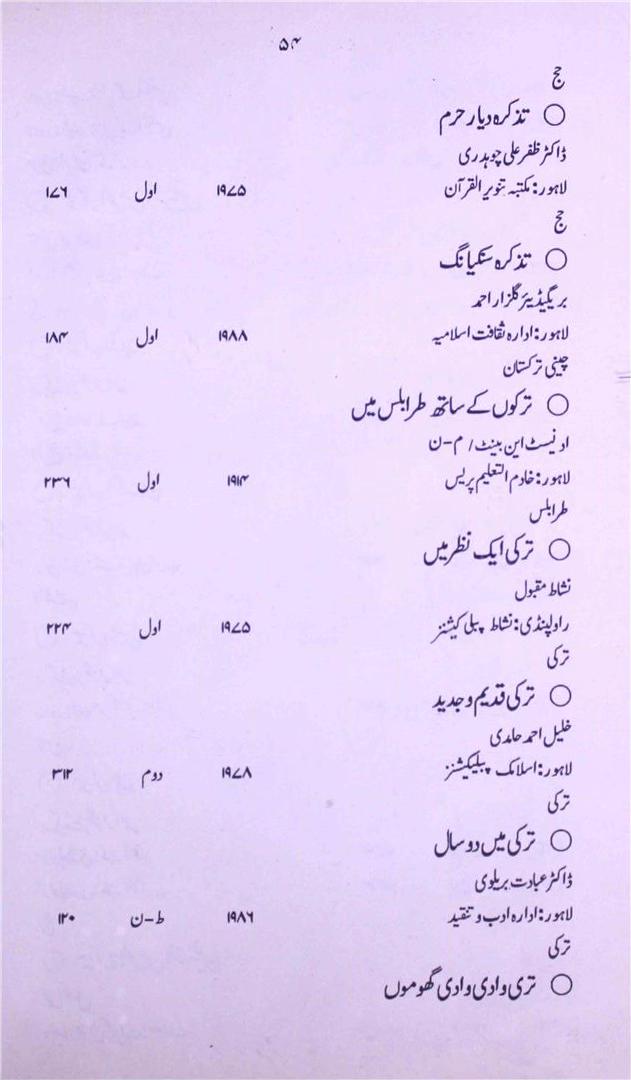 ۵۴
حج
○ تذکرہ دیار حرم
ڈاکٹر ظفر علی چوہدری
لاہور: مکتبہ تنویر القرآن ۱۹۷۵ اول ۱۷۶
حج
○ تذکرہ سنکیانگ
بریگیڈیئر گلزار احمد
لاہور: ادارہ ثقافت اسلامیہ ۱۹۸۸ اول ۱۸۴
چینی ترکستان
○ ترکوں کے ساتھ طرابلس میں
ارنیسٹ این بینٹ / م-ن
لاہور: خادم التعلیم پریس ۱۹۱۴ اول ۲۳۶
طرابلس
○ ترکی ایک نظر میں
نشاط مقبول
راولپنڈی: نشاط پبلی کیشنز ۱۹۷۵ اول ۲۲۴
ترکی
○ ترکی قدیم و جدید
خلیل احمد حامدی
لاہور: اسلامک پبلیکیشنز ۱۹۷۸ دوم ۳۱۲
ترکی
○ ترکی میں دو سال
ڈاکٹر عبادت بریلوی
لاہور: ادارہ ادب و تنقید ۱۹۸۶ ط-ن ۱۲۰
ترکی
○ تری وادی وادی گھوموں